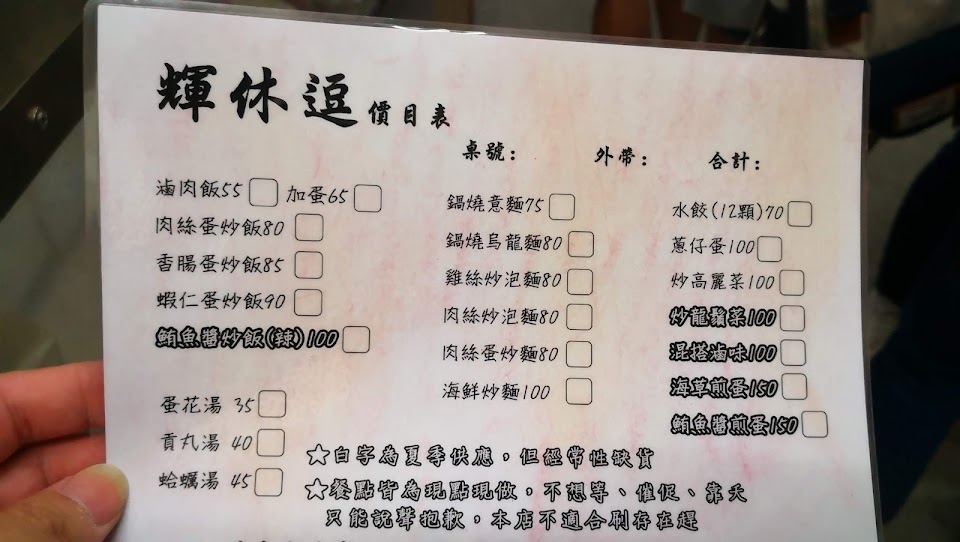 輝休逗價目表
桌號： 外帶： 合計：
滷肉飯55 加蛋65
肉絲蛋炒飯80
香腸蛋炒飯85
蝦仁蛋炒飯90
鮪魚醬炒飯(辣)100
蛋花湯 35
貢丸湯 40
蛤蠣湯 45
鍋燒意麵75
鍋燒烏龍麵80
雞絲炒泡麵80
肉絲炒泡麵80
肉絲蛋炒麵80
海鮮炒麵100
水餃(12顆)70
蔥仔蛋100
炒高麗菜100
炒龍鬚菜100
混搭滷味100
海草煎蛋150
鮪魚醬煎蛋150
☆白字為夏季供應，但經常性缺貨
☆餐點皆為現點現做，不想等、催促、靠夭
只能說聲抱歉，本店不適合刷存在趕